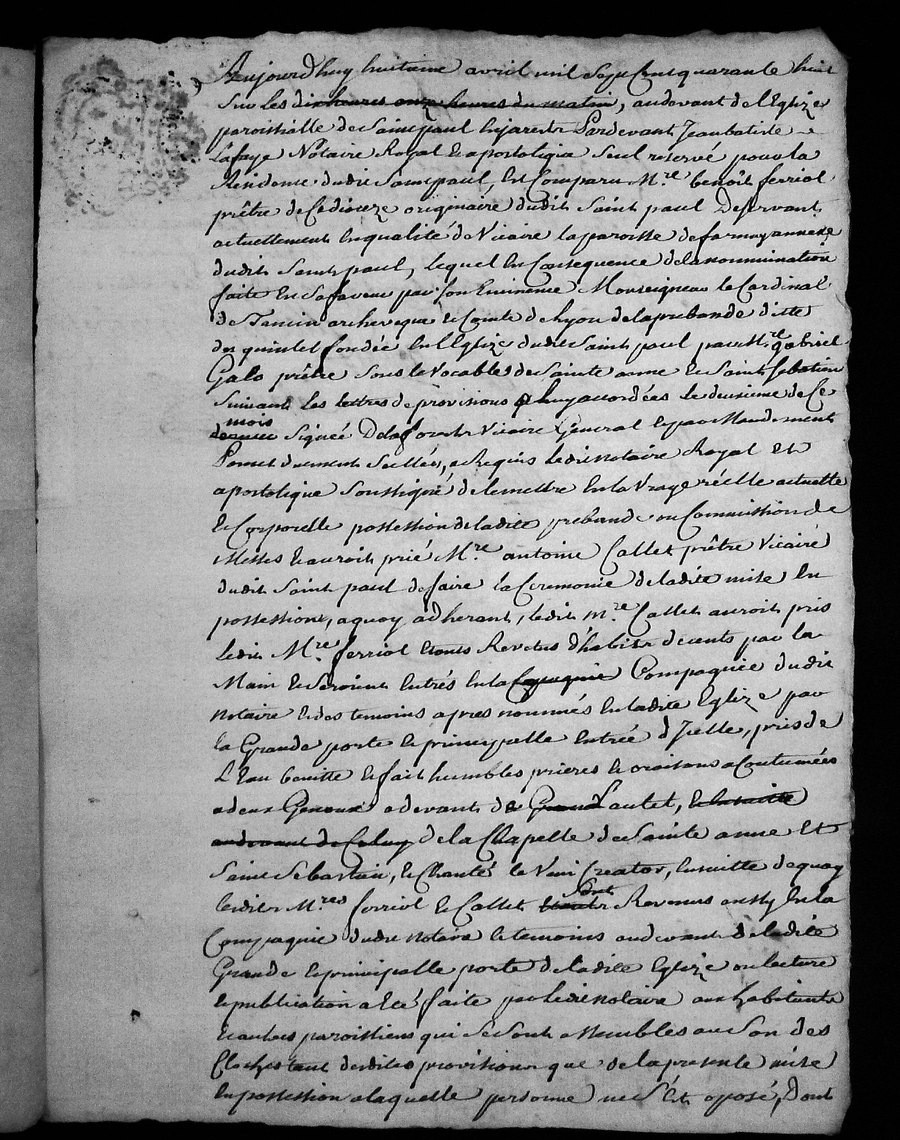 Aujourdhuy huitieme avril mil Sept Cent quarante huit
Sur les dix heures onze heures du matin, audevant de l'Eglize
paroissialle de Saint paul En jarest Pardevant Jean batiste
Lafaye Notaire Royal & apostolique Seul reservé pour la
Residence dudit Saint paul, Est Comparu Mre benoit ferriol
prêtre de Ce dioceze originaire dudit Saint paul Desservant
actuellement En qualité de Vicaire la paroisse de farnay annexe
dudit Saint paul, lequel En Consequence de la nommination
faite En Sa faveur par Son Eminence Monseigneur le Cardinal
de Tencin archeveque & Comte de Lyon de la prebande ditte
des quintet fondée En l'Eglize dudit Saint paul par Mre gabriel
Galo prêtre Sous le Vocables de Sainte anne & Saint Sebatien
Suivant les lettres de provisions a luy accordées le deuxieme de Ce
mois
dernier Signée Delaforest Vicaire General & par Mandement
Ponset duement Scellées, a Requis ledit Notaire Royal Et
apostolique Soussigné de le mettre En la Vraye réelle actuelle
& Corporelle possession de ladite prebande ou Commission de
Messes & auroit prié Mre antoine Callet prêtre Vicaire
dudit Saint paul de faire la Ceremonie de ladite mise En
possession, a quoy adherant, ledit Mre Callet auroit pris
ledit Mre ferriol Etants Revetus d'habits decents par la
Main & Seroint Entrés En la Compagnie Compagnée dudit
Notaire & des temoins apres nommés En ladite Eglize par
la Grande porte & principalle Entrée d'Icelle, pris de
L'Eau benitte & fait humbles prieres & oraisons acoutumées
a deux Genoux adevant de Grand L'autel, & la suitte
audevant de Celuy de la Chapelle de Sainte anne Et
Saint Sebastien, & Chanté le Veni Creator, Ensuitte de quoy
Sont
lesdits Mres ferriol & Callet Revenus aussy En la
Compagnie dudit Notaire & temoins audevant de ladite
Grande & principalle porte de ladite Eglize ou lecture
& publication a Eté faite par ledit Notaire aux habitants
& autres paroissiens qui Se Sont assembles au Son des
Cloches tant desdites provisions que de la presente mise
En possession a laquelle personne ne S'Est oposé, Dont